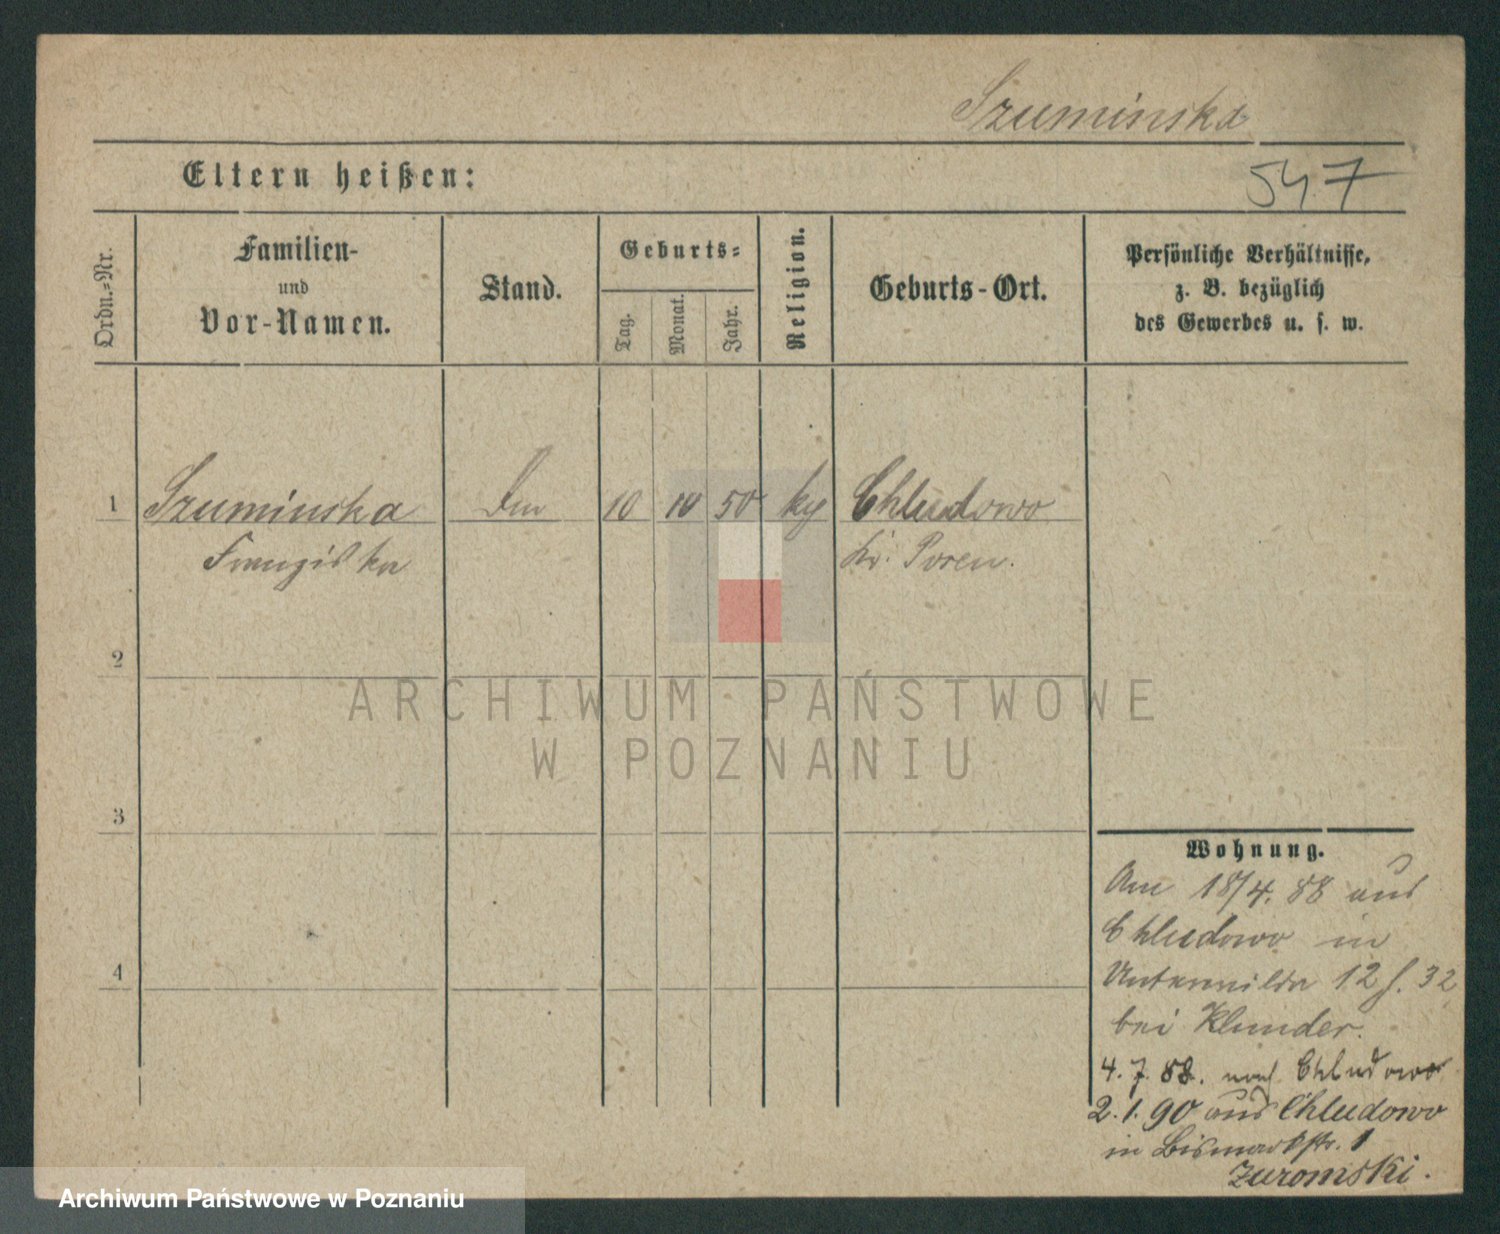 Szuminska
Eltern heißen:
547
Ordn.-Nr.
Familien-
und
Vor-Namen.
Stand.
Geburts-
Tag.
Monat.
Jahr.
Religion.
Geburts-Ort.
Persönliche Verhältnisse,
z. B. bezüglich
des Gewerbes u. s. w.
1 Szuminska 10 10 50 Chludowo
Franziska Kr. Posen.
2
ARCHIWUM PAŃSTWOWE
W POZNANIU
3
4
Wohnung.
Am 18/4. 88 aus
Chludowo in
Unterwilda 12 32
bei Klunder.
4. 7. 88. nach Chludowo
2. 1. 90 aus Chludowo
in Bismarkstr. 1
Zuromski.
Archiwum Państwowe w Poznaniu